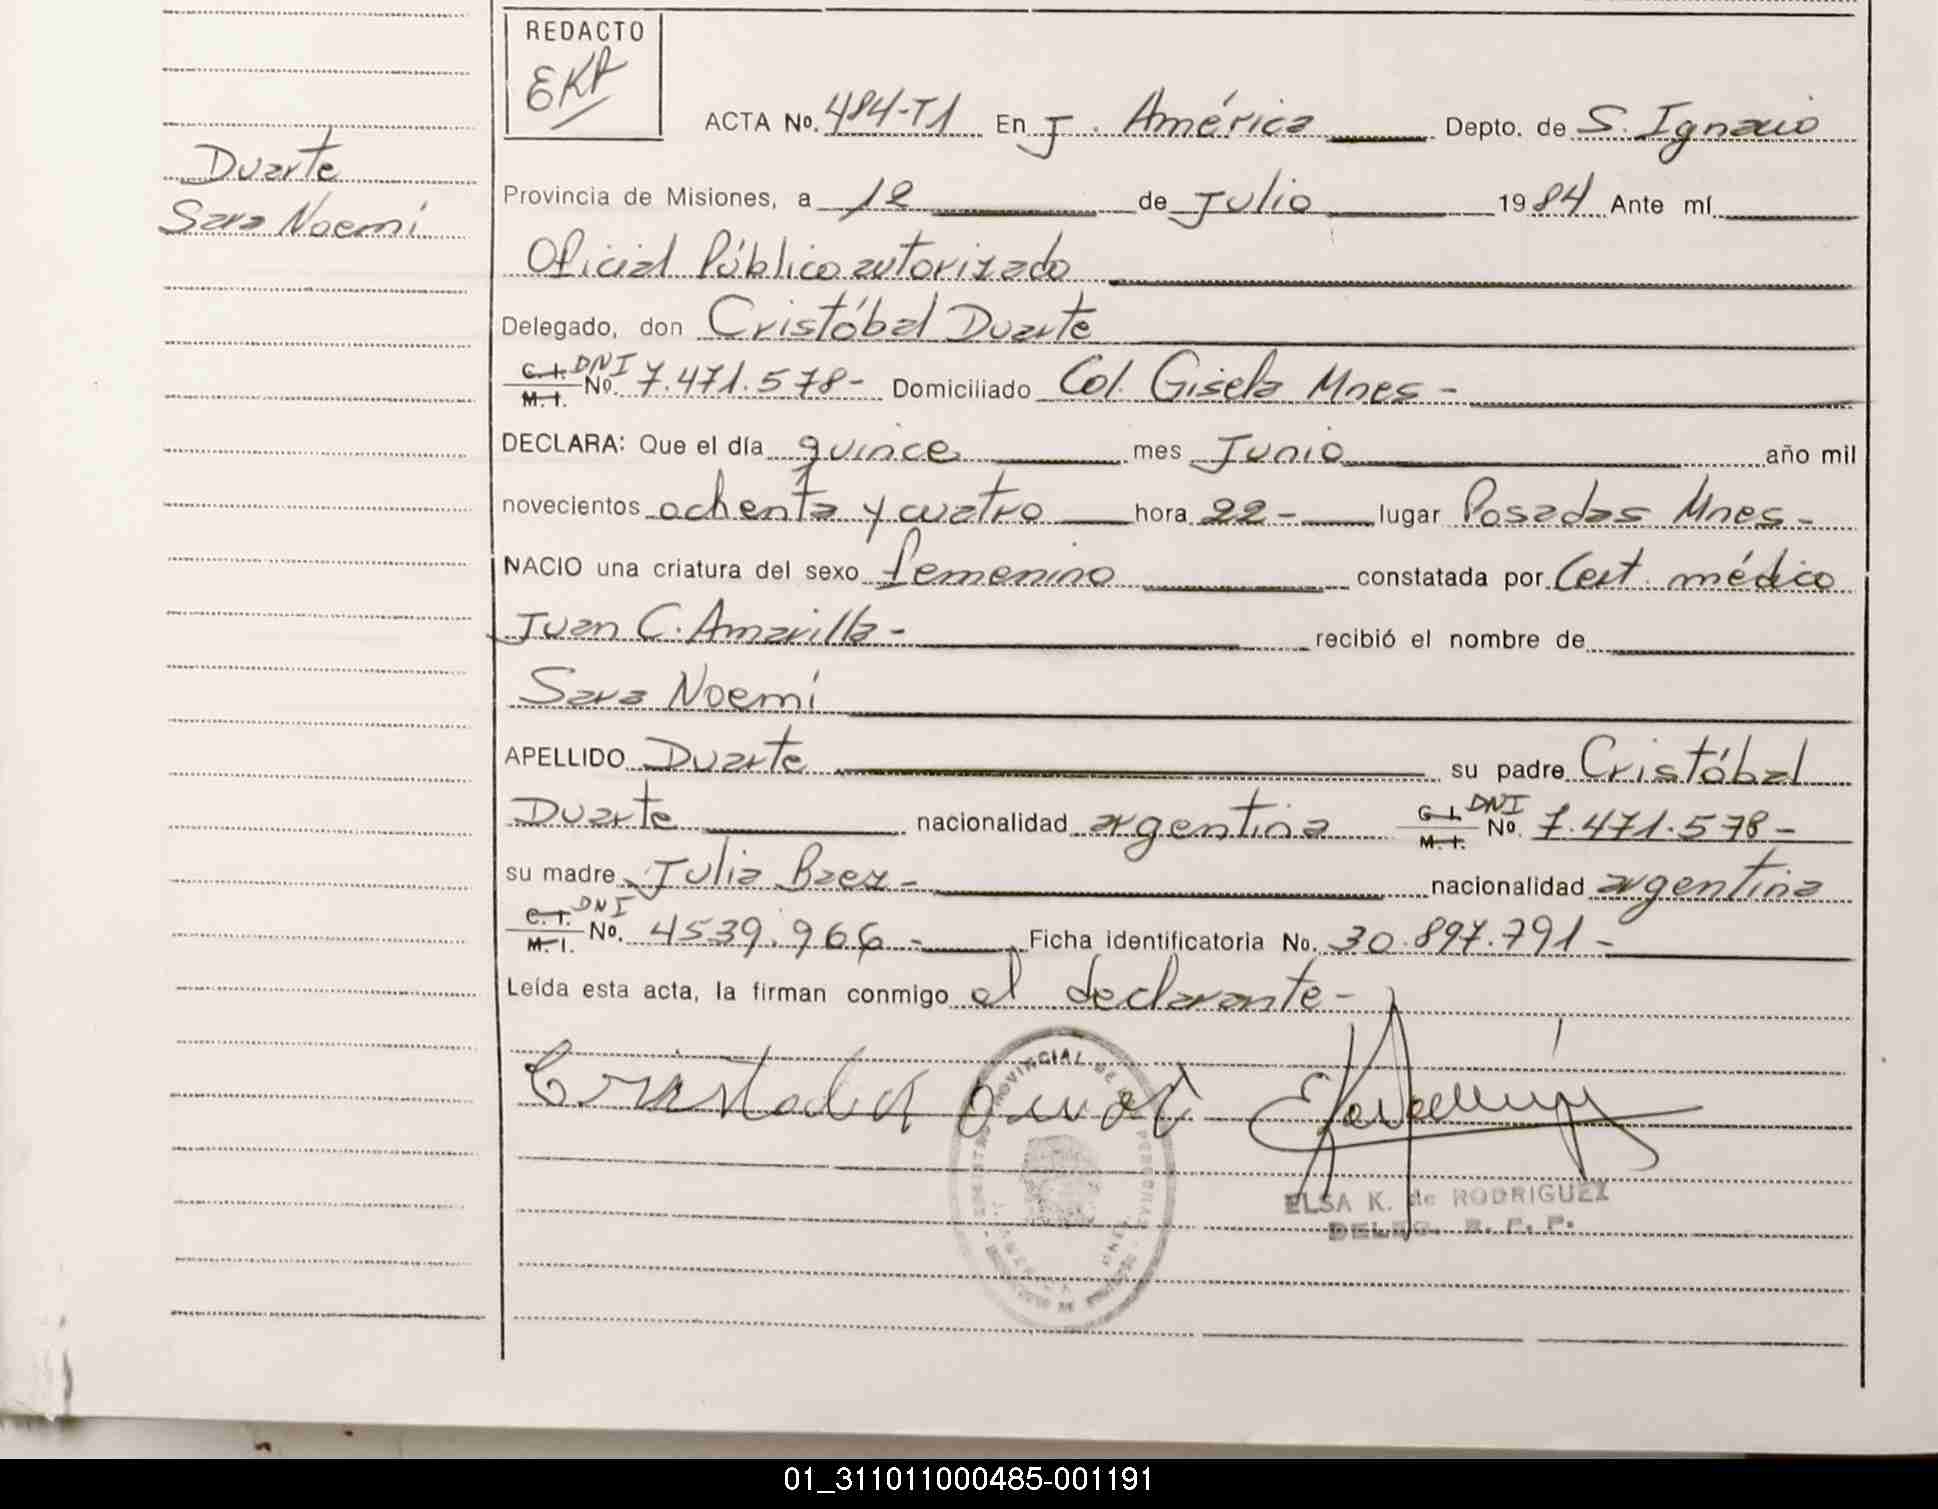 REDACTO
EKR
ACTA No. 484-T1 En J. América Depto. de S. Ignacio
Duarte
Sara Noemí
Provincia de Misiones, a 12 de Julio 1984 Ante mí
Oficial Público autorizado
Delegado, don Cristóbal Duarte
C.I. M.I. DNI No. 7.471.578- Domiciliado Col. Gisela Mnes-
DECLARA: Que el día quince mes Junio año mil
novecientos ochenta y cuatro hora 22- lugar Posadas Mnes-
NACIO una criatura del sexo femenino constatada por Cert. médico
Juan C. Amarilla- recibió el nombre de
Sara Noemí
APELLIDO Duarte su padre Cristóbal
Duarte nacionalidad argentina C.I. M.I. DNI No. 7.471.578-
su madre Julia Baez- nacionalidad argentina
C.I. M.I. DNI No. 4539.966- Ficha identificatoria No. 30.897.791-
Leída esta acta, la firman conmigo el declarante-
ELSA K. de RODRIGUEZ
DELEG. R. P. P.
01_311011000485-001191